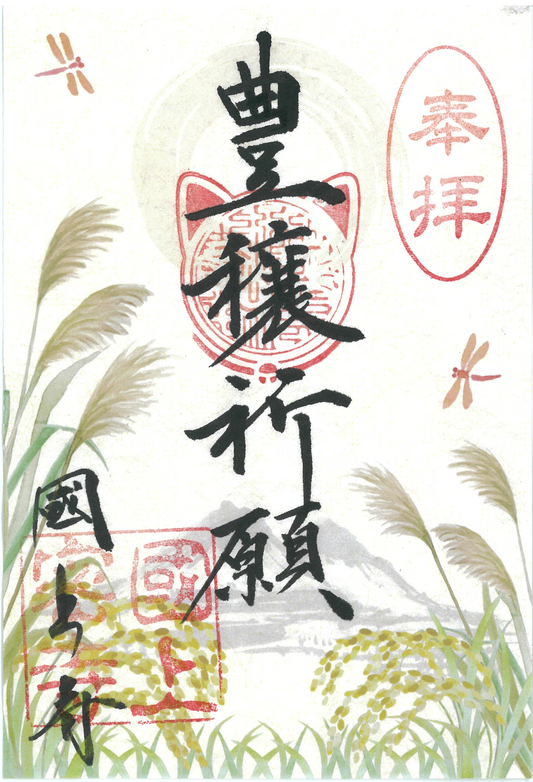 奉拝
豊穣祈願
國上寺
國上